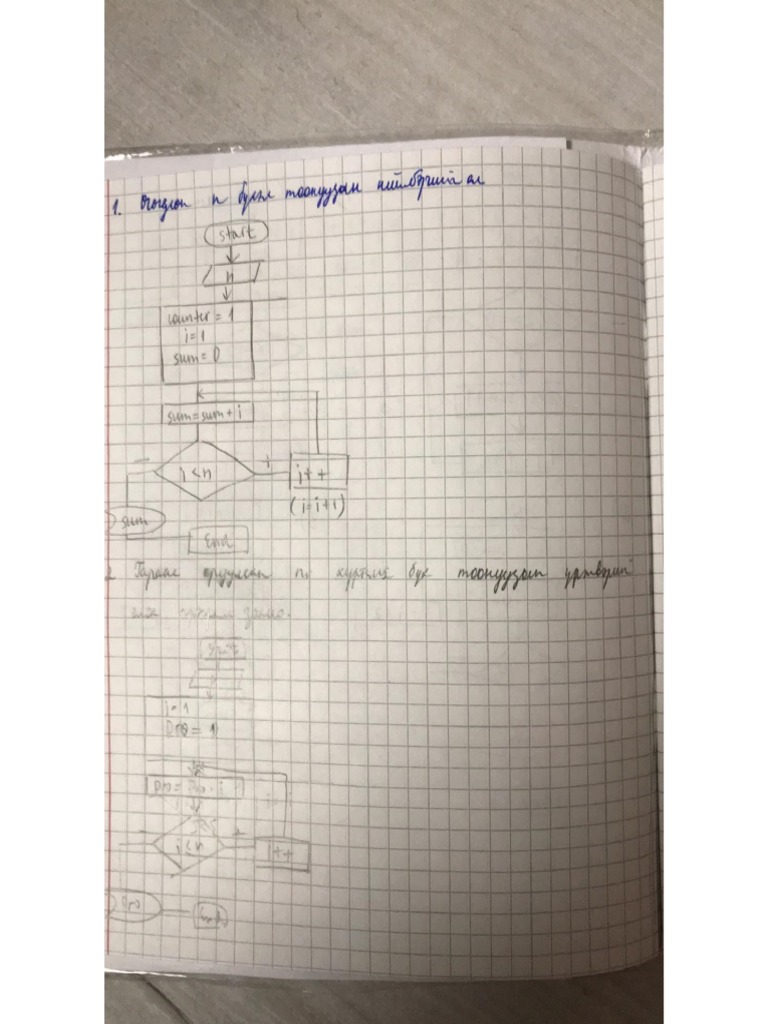 1. n бүхэл тоонуудын нийлбэрийг ол
start
n
counter = 1
i=1
sum=0
sum=sum+i
i<n
+
i++
(i=i+1)
sum
End
2 Гараас оруулсан n хүртэлх бүх тоонуудын үржвэрийг
i=1
pro = 1
i<n
+
i++
pro
End